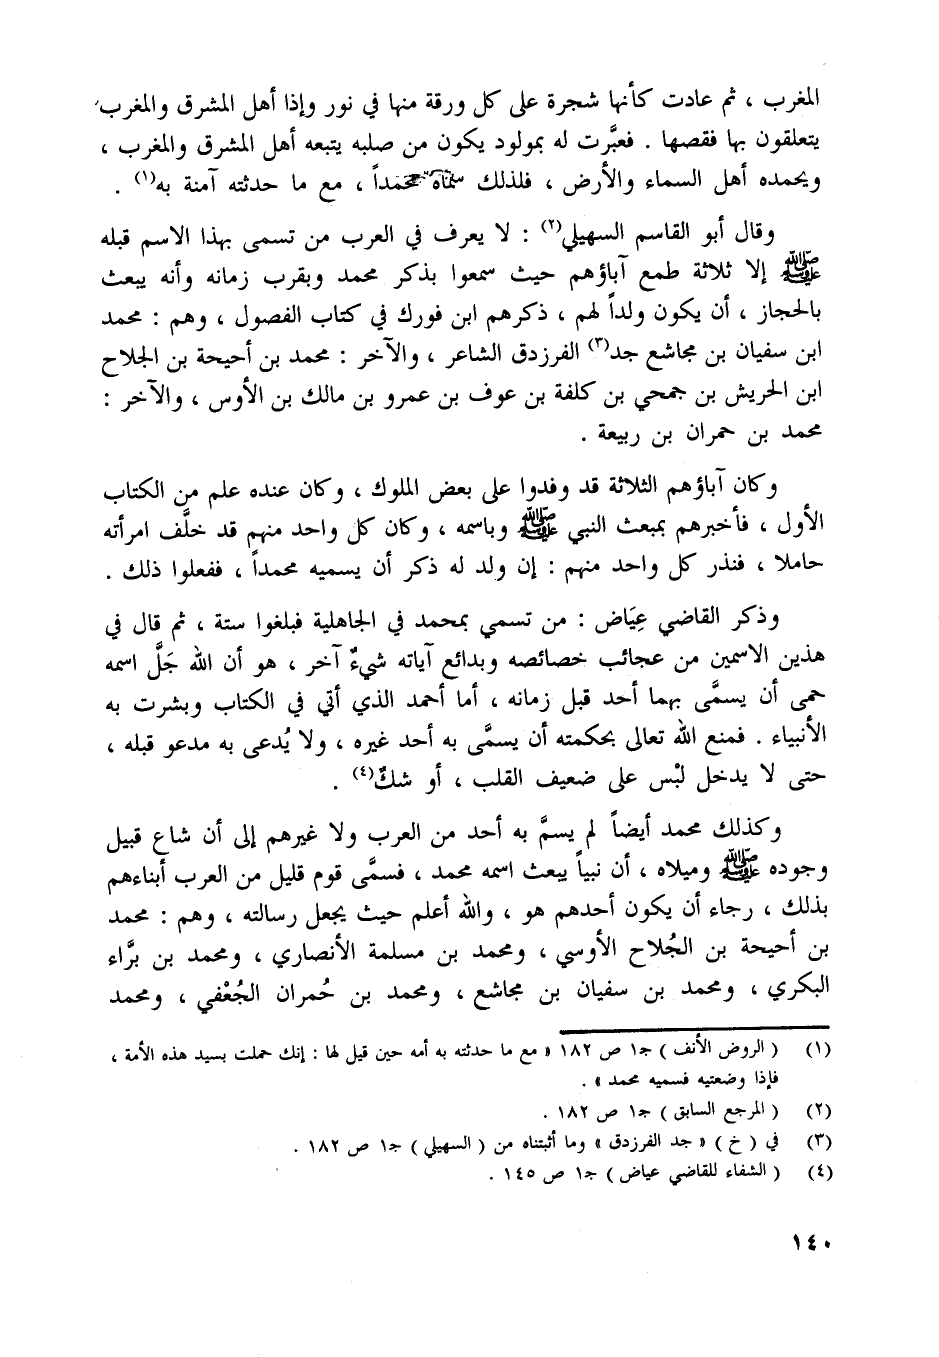 المغرب ، ثم عادت كأنها شجرة على كل ورقة منها في نور وإذا أهل المشرق والمغرب
يتعلقون بها فقصها . فعبَّرت له بمولود يكون من صلبه يتبعه أهل المشرق والمغرب ،
ويحمده أهل السماء والأرض ، فلذلك سماه محمداً ، مع ما حدثته آمنة به(١) .
وقال أبو القاسم السهيلي(٢) : لا يعرف في العرب من تسمى بهذا الاسم قبله
ﷺ إلا ثلاثة طمع آباؤهم حيث سمعوا بذكر محمد وبقرب زمانه وأنه يبعث
بالحجاز ، أن يكون ولداً لهم ، ذكرهم ابن فورك في كتاب الفصول ، وهم : محمد
ابن سفيان بن مجاشع جد(٣) الفرزدق الشاعر ، والآخر : محمد بن أحيحة بن الجلاح
ابن الحريش بن جمحي بن كلفة بن عوف بن عمرو بن مالك بن الأوس ، والآخر :
محمد بن حمران بن ربيعة .
وكان آباؤهم الثلاثة قد وفدوا على بعض الملوك ، وكان عنده علم من الكتاب
الأول ، فأخبرهم بمبعث النبي ﷺ وباسمه ، وكان كل واحد منهم قد خلَّف امرأته
حاملا ، فنذر كل واحد منهم : إن ولد له ذكر أن يسميه محمداً ، ففعلوا ذلك .
وذكر القاضي عِيَاض : من تسمي بمحمد في الجاهلية فبلغوا ستة ، ثم قال في
هذين الاسمين من عجائب خصائصه وبدائع آياته شيءٌ آخر ، هو أن الله جَلَّ اسمه
حمى أن يسمَّى بهما أحد قبل زمانه ، أما أحمد الذي أتي في الكتاب وبشرت به
الأنبياء . فمنع الله تعالى بحكمته أن يسمَّى به أحد غيره ، ولا يُدعى به مدعو قبله ،
حتى لا يدخل لبْس على ضعيف القلب ، أو شكٌ(٤) .
وكذلك محمد أيضاً لم يسمَّ به أحد من العرب ولا غيرهم إلى أن شاع قبيل
وجوده ﷺ وميلاه ، أن نبياً يبعث اسمه محمد ، فسمَّى قوم قليل من العرب أبناءهم
بذلك ، رجاء أن يكون أحدهم هو ، والله أعلم حيث يجعل رسالته ، وهم : محمد
بن أحيحة بن الجُلاح الأوسي ، ومحمد بن مسلمة الأنصاري ، ومحمد بن برَّاء
البكري ، ومحمد بن سفيان بن مجاشع ، ومحمد بن حُمران الجُعْفي ، ومحمد
(١) ( الروض الأنف ) جـ١ ص ١٨٢ « مع ما حدثته به أمه حين قيل لها : إنك حملت بسيد هذه الأمة ،
فإذا وضعتيه فسميه محمد » .
(٢) ( المرجع السابق ) جـ١ ص ١٨٢ .
(٣) في ( خ ) « جد الفرزدق » وما أثبتناه من ( السهيلي ) جـ١ ص ١٨٢ .
(٤) ( الشفاء للقاضي عياض ) جـ١ ص ١٤٥ .
١٤٠